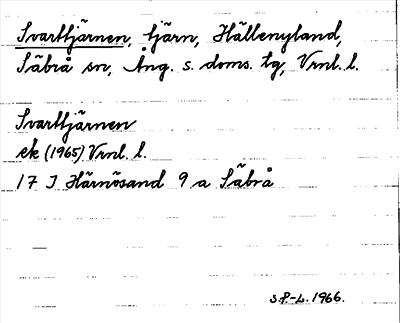 Svarttjärnen, tjärn, Hällenyland,
Säbrå sn, Ång. s. doms. tg, Vrnl. l.
Svarttjärnen
ek (1965) Vrnl. l.
17 I Härnösand 9 a Säbrå
S.P.-L. 1966.